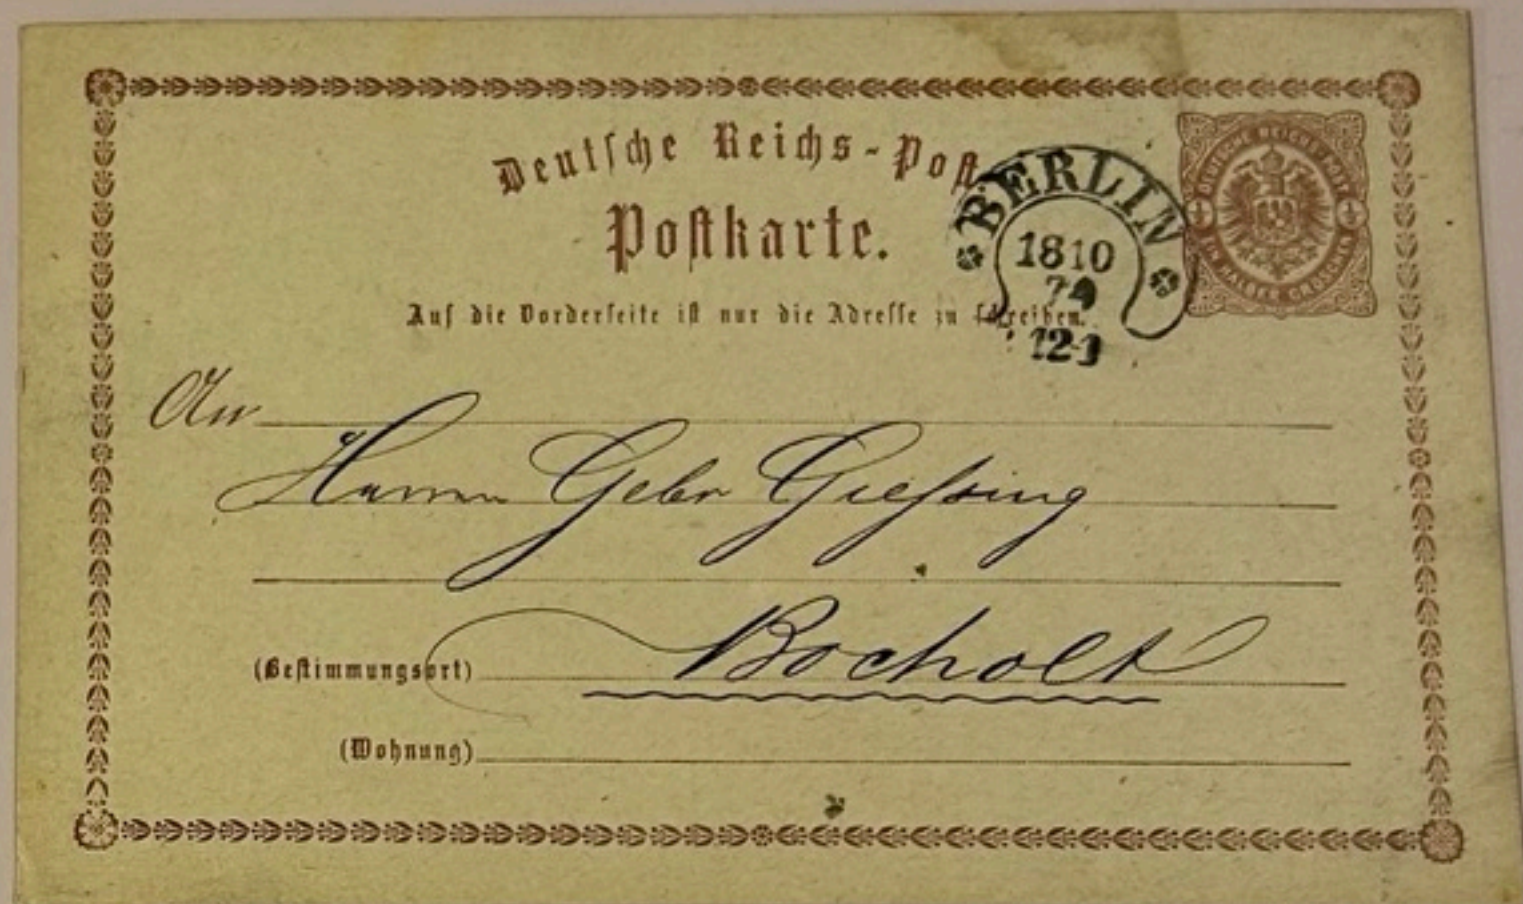 Deutsche Reichs-Post
Postkarte.
BERLIN
18 10
74
12-1
DEUTSCHE REICHS POST
½ ½
EIN HALBER GROSCHEN
Auf die Vorderseite ist nur die Adresse zu schreiben.
An
Herren Gebr Giessing
(Bestimmungsort) Bocholt
(Wohnung)